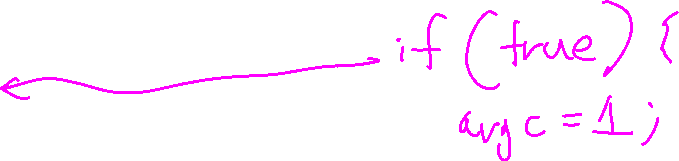 if (true) {
argc = 1;